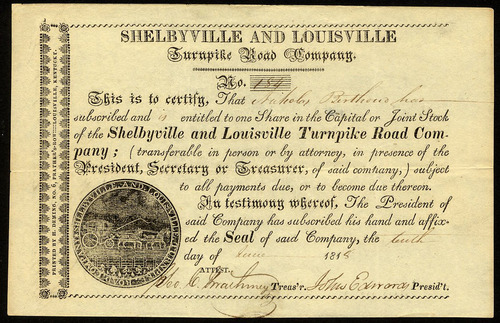 SHELBYVILLE AND LOUISVILLE
Turnpike Road Company.
No. 159
This is to certify, That Nicholas Berthoud has
subscribed and is entitled to one Share in the Capital or Joint Stock
of the Shelbyville and Louisville Turnpike Road Com-
pany; (transferable in person or by attorney, in presence of the
President, Secretary or Treasurer, of said company,) subject
to all payments due, or to become due thereon.
In testimony whereof, The President of
said Company has subscribed his hand and affix-
ed the Seal of said Company, the tenth
day of June 1818
ATTEST,
Treas'r. John Edwards Presid't.
SHELBYVILLE AND LOUISVILLE